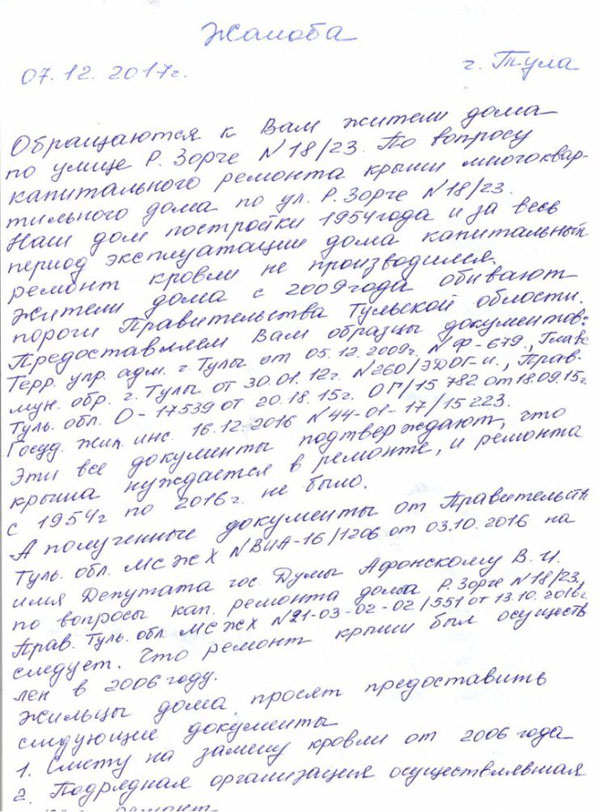 Жалоба
07.12.2017г. г. Тула
Обращаются к Вам жители дома
по улице Р. Зорге N 18/23. По вопросу
капитального ремонта крыши многоквар-
тильного дома по ул. Р. Зорге N 18/23.
Наш дом постройки 1954 года и за весь
период эксплуатации дома капитальный
ремонт кровли не производился.
Жители дома с 2009 года обивают
пороги Правительства Тульской области.
Предоставляем Вам образцы документов:
Терр. упр. адм. г. Тулы от 05.12.2009г. N Ф-679., Глав.
мун. обр. г. Тулы от 30.01.12г. N260/ЭДОГ-и., Прав.
Туль. обл. О-17539 от 20.18.15г. ОГ/15782 от 18.09.15г.
Госуд. жил. инс. 16.12.2016 N44-01-17/15223.
Эти все документы подтверждают, что
крыша нуждается в ремонте, и ремонта
с 1954г по 2016г. не было.
А полученные документы от Правительств
Туль. обл. МСЖКХ N ВИА-16/1206 от 03.10.2016 на
имя Депутата гос. Думы Афонскому В. И.
по вопросы кап. ремонта дома Р. Зорге N18/23,
Прав. Туль. обл. МСЖКХ N21-03-02-02/551 от 13.10.2016г
следует. Что ремонт крыши был осуществ
лен в 2006 году.
Жильцы дома просят предоставить
следующие документы
1. Смету на замену кровли от 2006 года
2. Подрядная организация осуществлявшая
ремонт